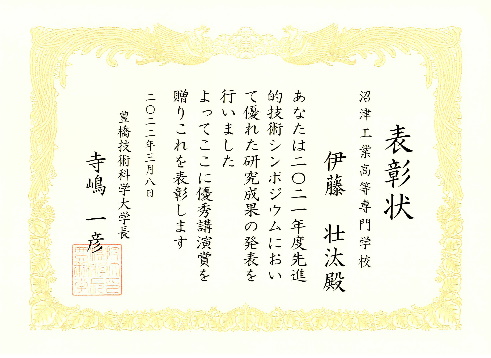 表彰状
沼津工業高等専門学校
伊藤 壮汰殿
あなたは二〇二一年度先進
的技術シンポジウムにおい
て優れた研究成果の発表を
行いました
よってここに優秀講演賞を
贈りこれを表彰します
二〇二二年三月八日
豊橋技術科学大学長
寺嶋 一彦